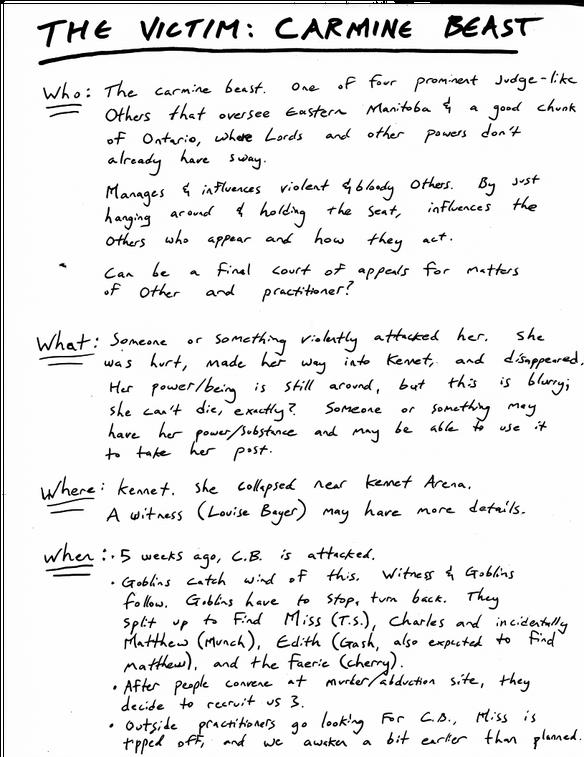 THE VICTIM: CARMINE BEAST
Who: The carmine beast. One of four prominent Judge-like
Others that oversee Eastern Manitoba & a good chunk
of Ontario, where Lords and other powers don't
already have sway.
Manages & influences violent & bloody Others. By just
hanging around & holding the seat, influences the
Others who appear and how they act.
Can be a final court of appeals for matters
of Other and practitioner?
What: Someone or something violently attacked her. She
was hurt, made her way into Kennet, and disappeared.
Her power/being is still around, but this is blurry;
she can't die, exactly? Someone or something may
have her power/substance and may be able to use it
to take her post.
Where: Kennet. She collapsed near Kennet Arena.
A witness (Louise Bayer) may have more details.
When: • 5 weeks ago, C.B. is attacked.
• Goblins catch wind of this. Witness & Goblins
follow. Goblins have to stop, turn back. They
split up to find Miss (T.S.), Charles and incidentally
Matthew (Munch), Edith (Gash, also expected to find
matthew), and the Faerie (cherry).
• After people convene at murder/abduction site, they
decide to recruit us 3.
• Outside practitioners go looking for C.B., Miss is
tipped off, and we awaken a bit earlier than planned.